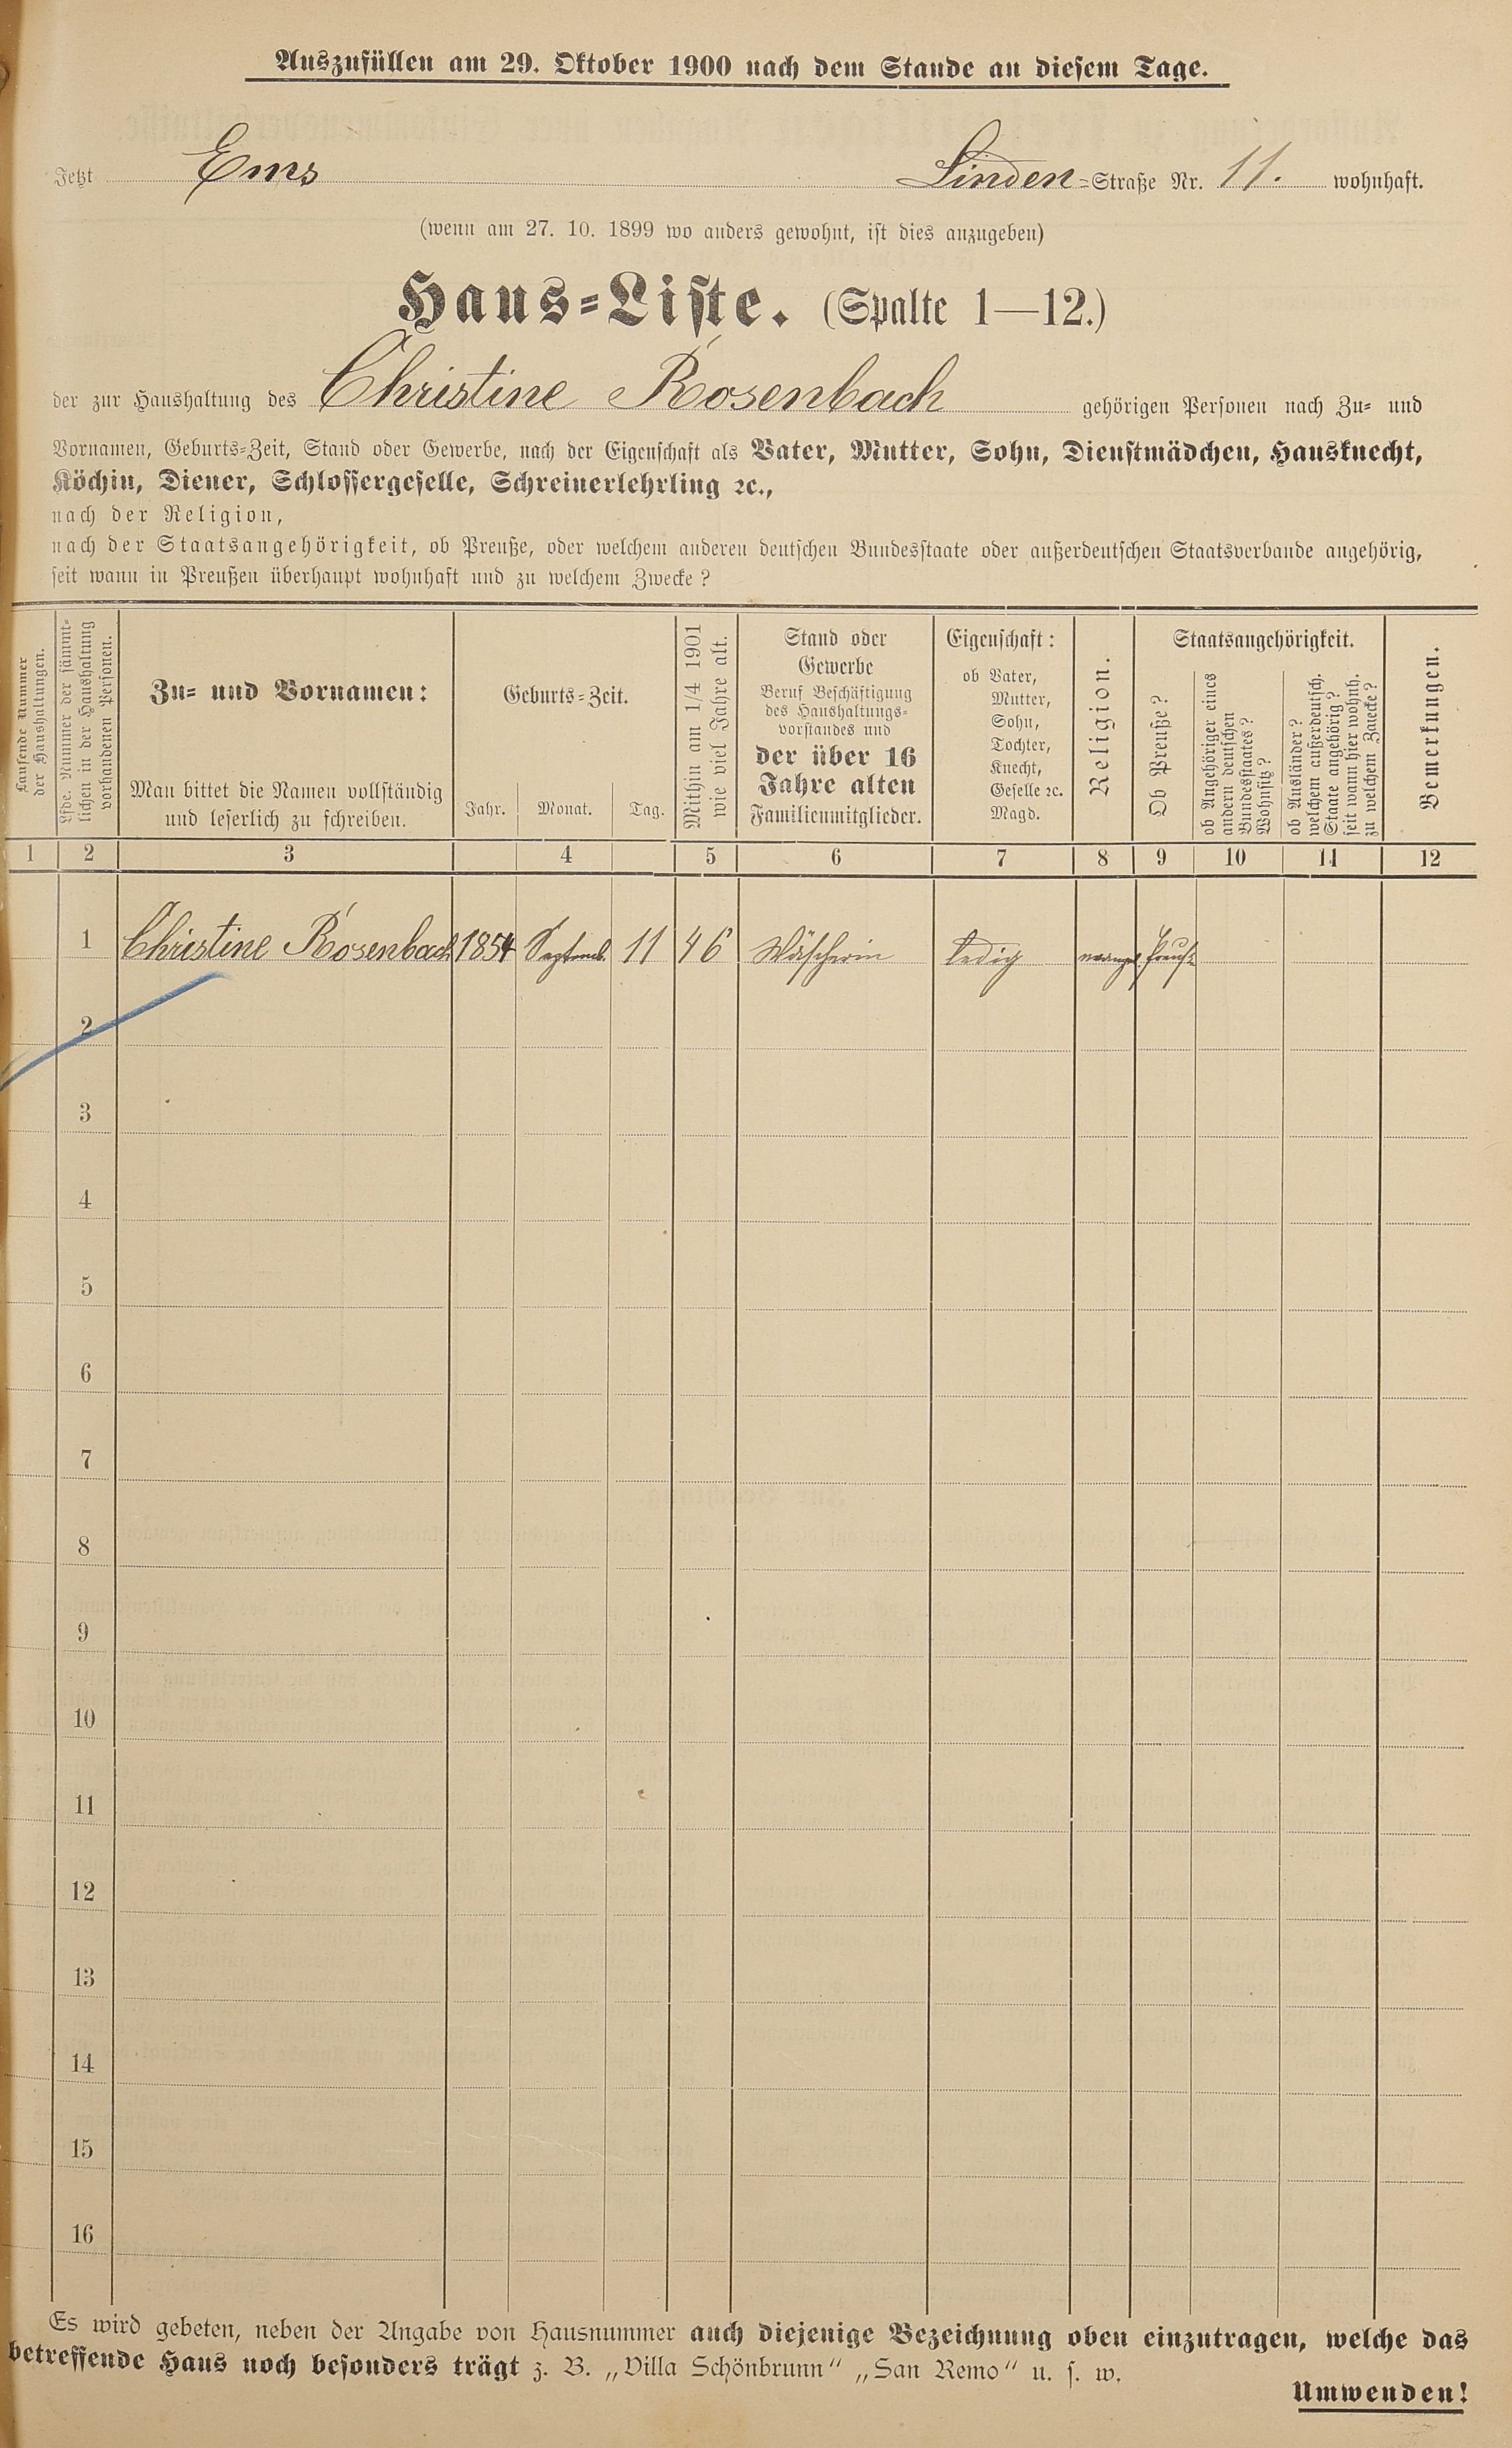 Auszufüllen am 29. Oktober 1900 nach dem Stande an diesem Tage.
Jetzt Ems Linden-Straße Nr. 11. wohnhaft.
(wenn am 27. 10. 1899 wo anders gewohnt, ist dies anzugeben)
Haus-Liste. (Spalte 1—12.)
der zur Haushaltung des Christine Rosenbach gehörigen Personen nach Zu- und
Vornamen, Geburts-Zeit, Stand oder Gewerbe, nach der Eigenschaft als Vater, Mutter, Sohn, Dienstmädchen, Hausknecht,
Köchin, Diener, Schlossergeselle, Schreinerlehrling ꝛc.,
nach der Religion,
nach der Staatsangehörigkeit, ob Preuße, oder welchem anderen deutschen Bundesstaate oder außerdeutschen Staatsverbande angehörig,
seit wann in Preußen überhaupt wohnhaft und zu welchem Zwecke?
Laufende Nummer
der Haushaltungen.
Lfde. Nummer der sämmt-
lichen in der Haushaltung
vorhandenen Personen.
Zu- und Vornamen:
Man bittet die Namen vollständig
und leserlich zu schreiben.
Geburts-Zeit.
Jahr. Monat. Tag.
Mithin am 1/4 1901
wie viel Jahre alt.
Stand oder
Gewerbe
Beruf Beschäftigung
des Haushaltungs-
vorstandes und
der über 16
Jahre alten
Familienmitglieder.
Eigenschaft:
ob Vater,
Mutter,
Sohn,
Tochter,
Knecht,
Geselle ꝛc.
Magd.
Religion.
Staatsangehörigkeit.
Ob Preuße?
ob Angehöriger eines
andern deutschen
Bundesstaates?
Wohnsitz?
ob Ausländer?
welchem außerdeutsch.
Staate angehörig?
seit wann hier wohnh.
zu welchem Zwecke?
Bemerkungen.
1 2 3 4 5 6 7 8 9 10 11 12
1 Christine Rosenbach 1854 Septemb. 11 46 Wäscherin ledig evangel Preuße
2
3
4
5
6
7
8
9
10
11
12
13
14
15
16
Es wird gebeten, neben der Angabe von Hausnummer auch diejenige Bezeichnung oben einzutragen, welche das
betreffende Haus noch besonders trägt z. B. „Villa Schönbrunn“ „San Remo“ u. s. w.
Umwenden!